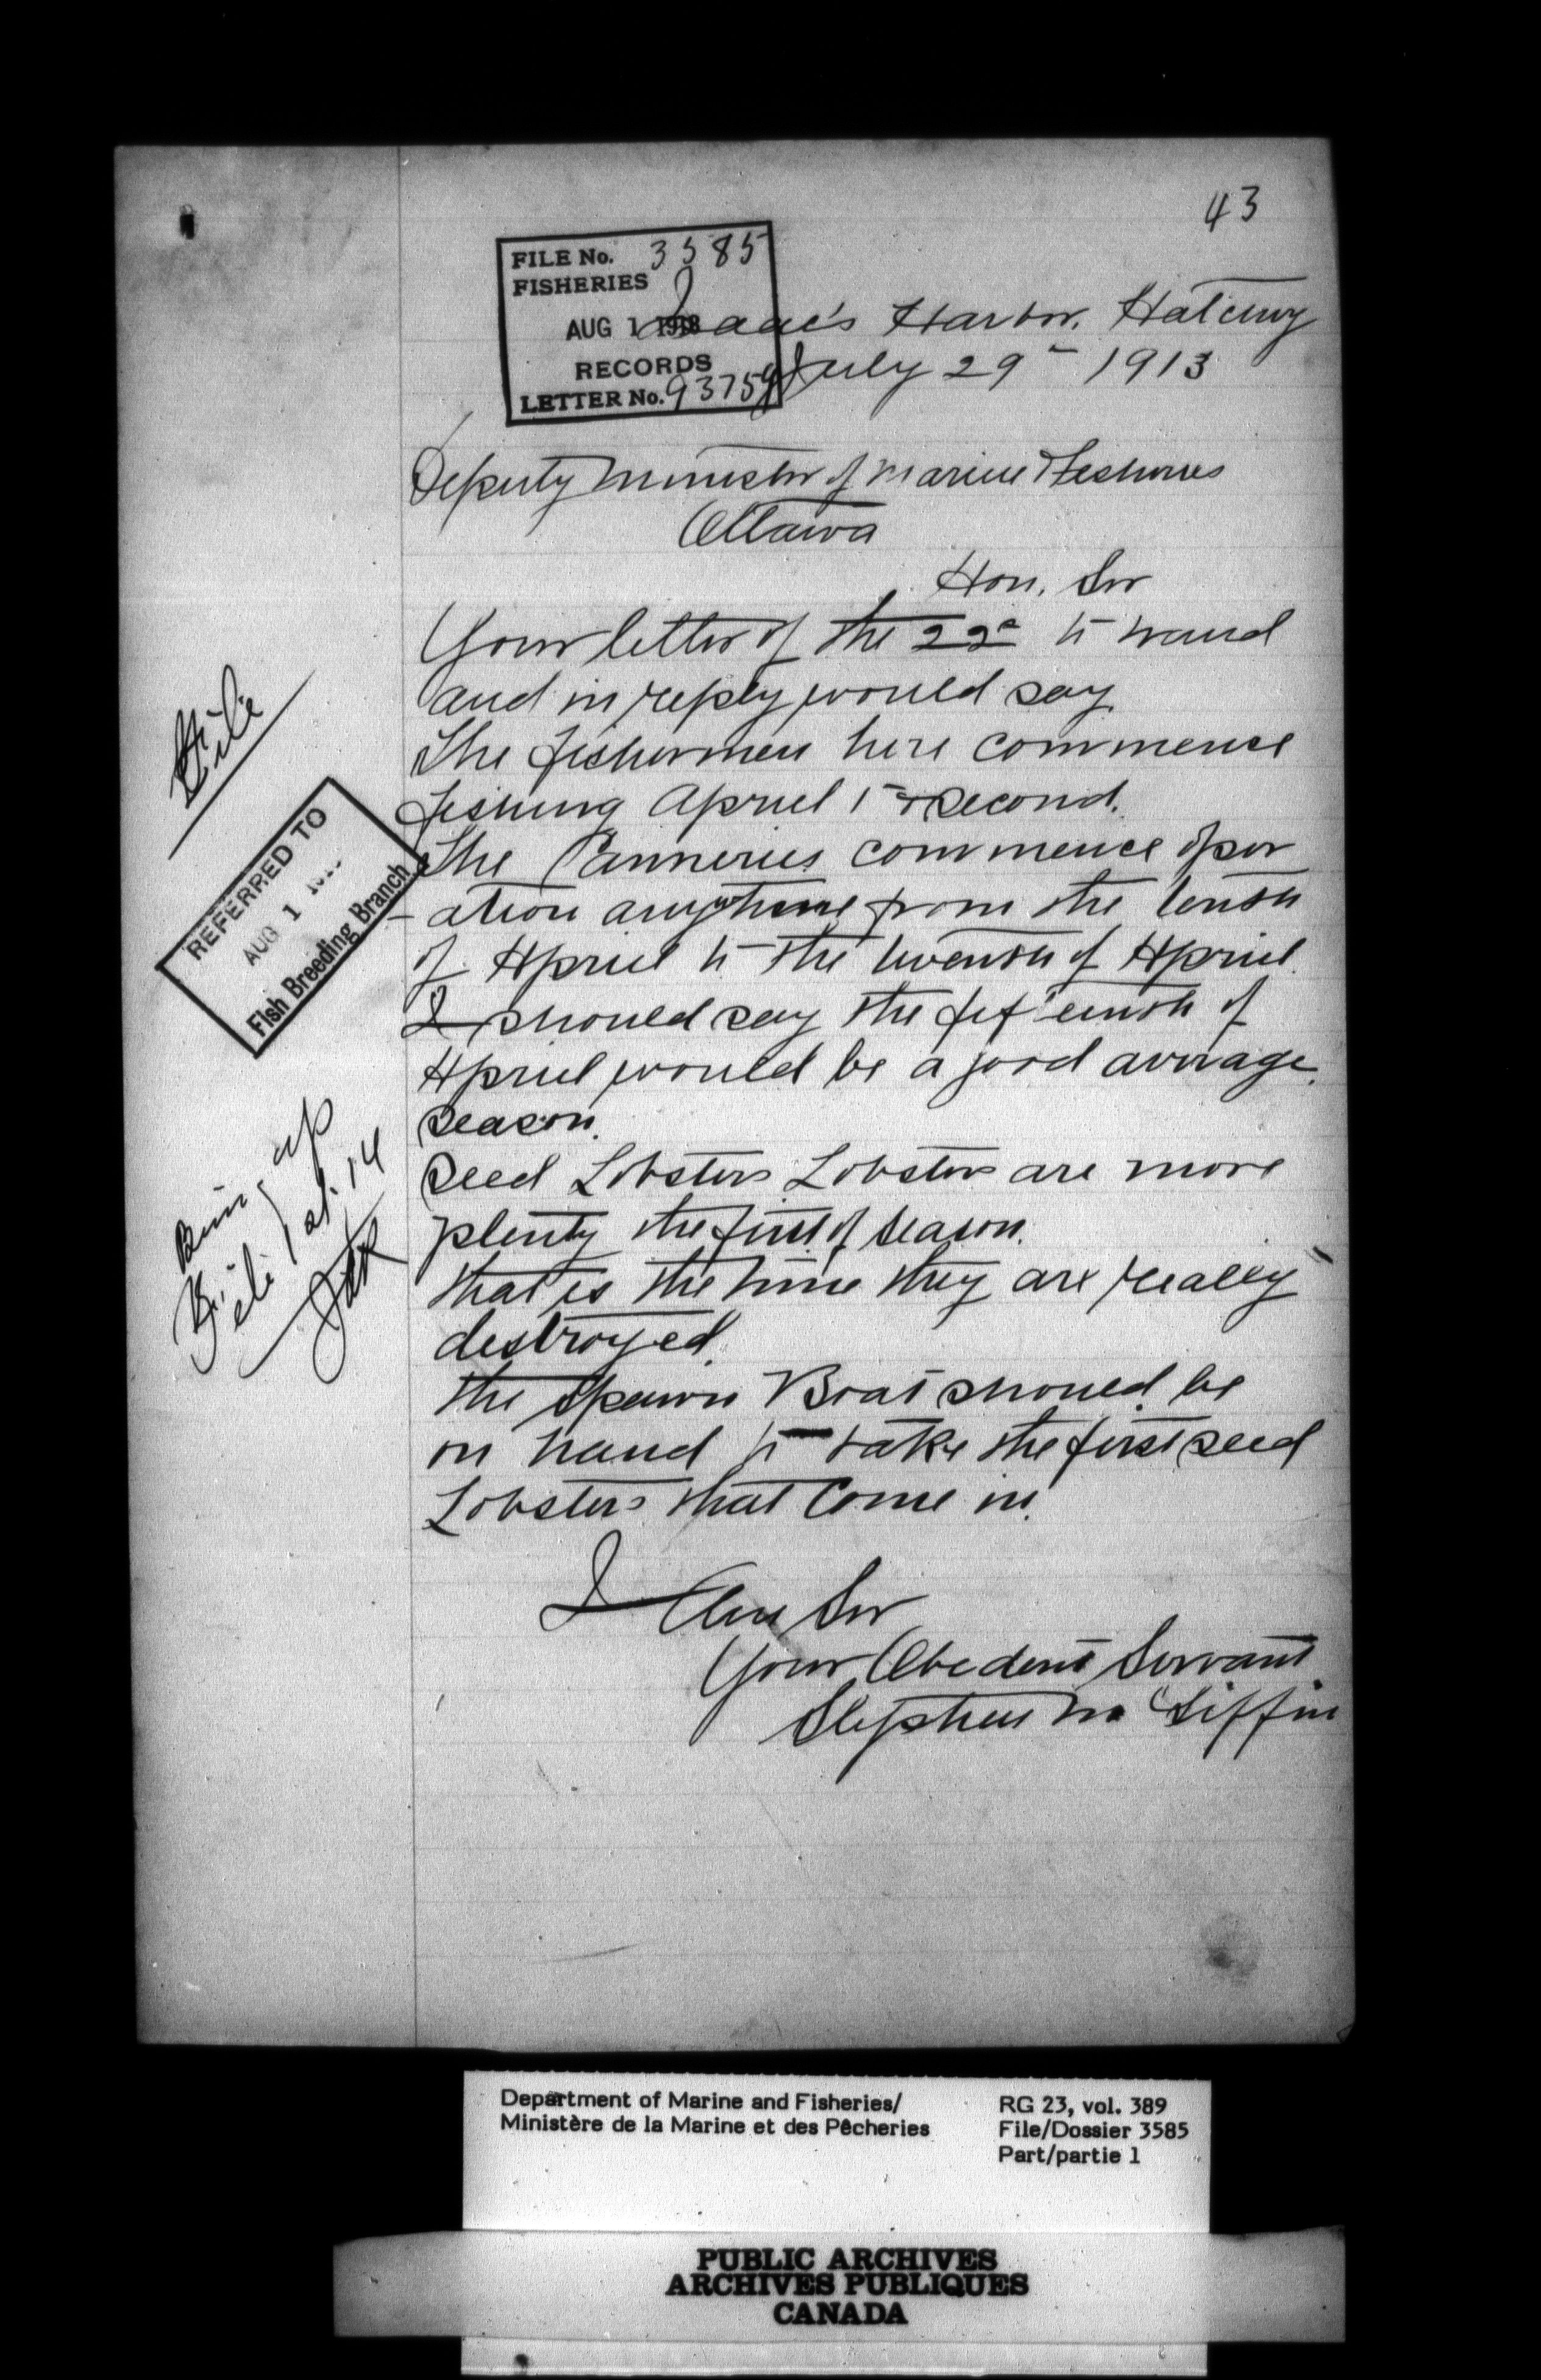 43
FILE No. 3585
FISHERIES
AUG 1 1913
RECORDS
LETTER No. 93759
Isaac's Harbor. Hatcery
July 29th 1913
Deputy Minister of Marine & Fesheries
Ottawa
Hon. Sir
Your letter of the 22d to hand
and in reply would say
The fishermen here commence
fishing Apriel 1st & second.
The Canneries commence oper
-ation anytime from the tenth
of Apriel to the twenth of Apriel.
I should say the fifteenth of
Apriel would be a good average
season.
Seed Lobsters Lobsters are more
plenty the first of season.
that is the time they are really
destroyed.
the Spawn Boat should be
on hand to take the first seed
Lobsters that Come in.
I Am Sir
Your Obedent Servant
Stephen M Giffin
File
REFERRED TO
AUG 1
Fish Breeding Branch
Bring up
14
Department of Marine and Fisheries/
Ministère de la Marine et des Pêcheries
RG 23, vol. 389
File/Dossier 3585
Part/partie 1
PUBLIC ARCHIVES
ARCHIVES PUBLIQUES
CANADA